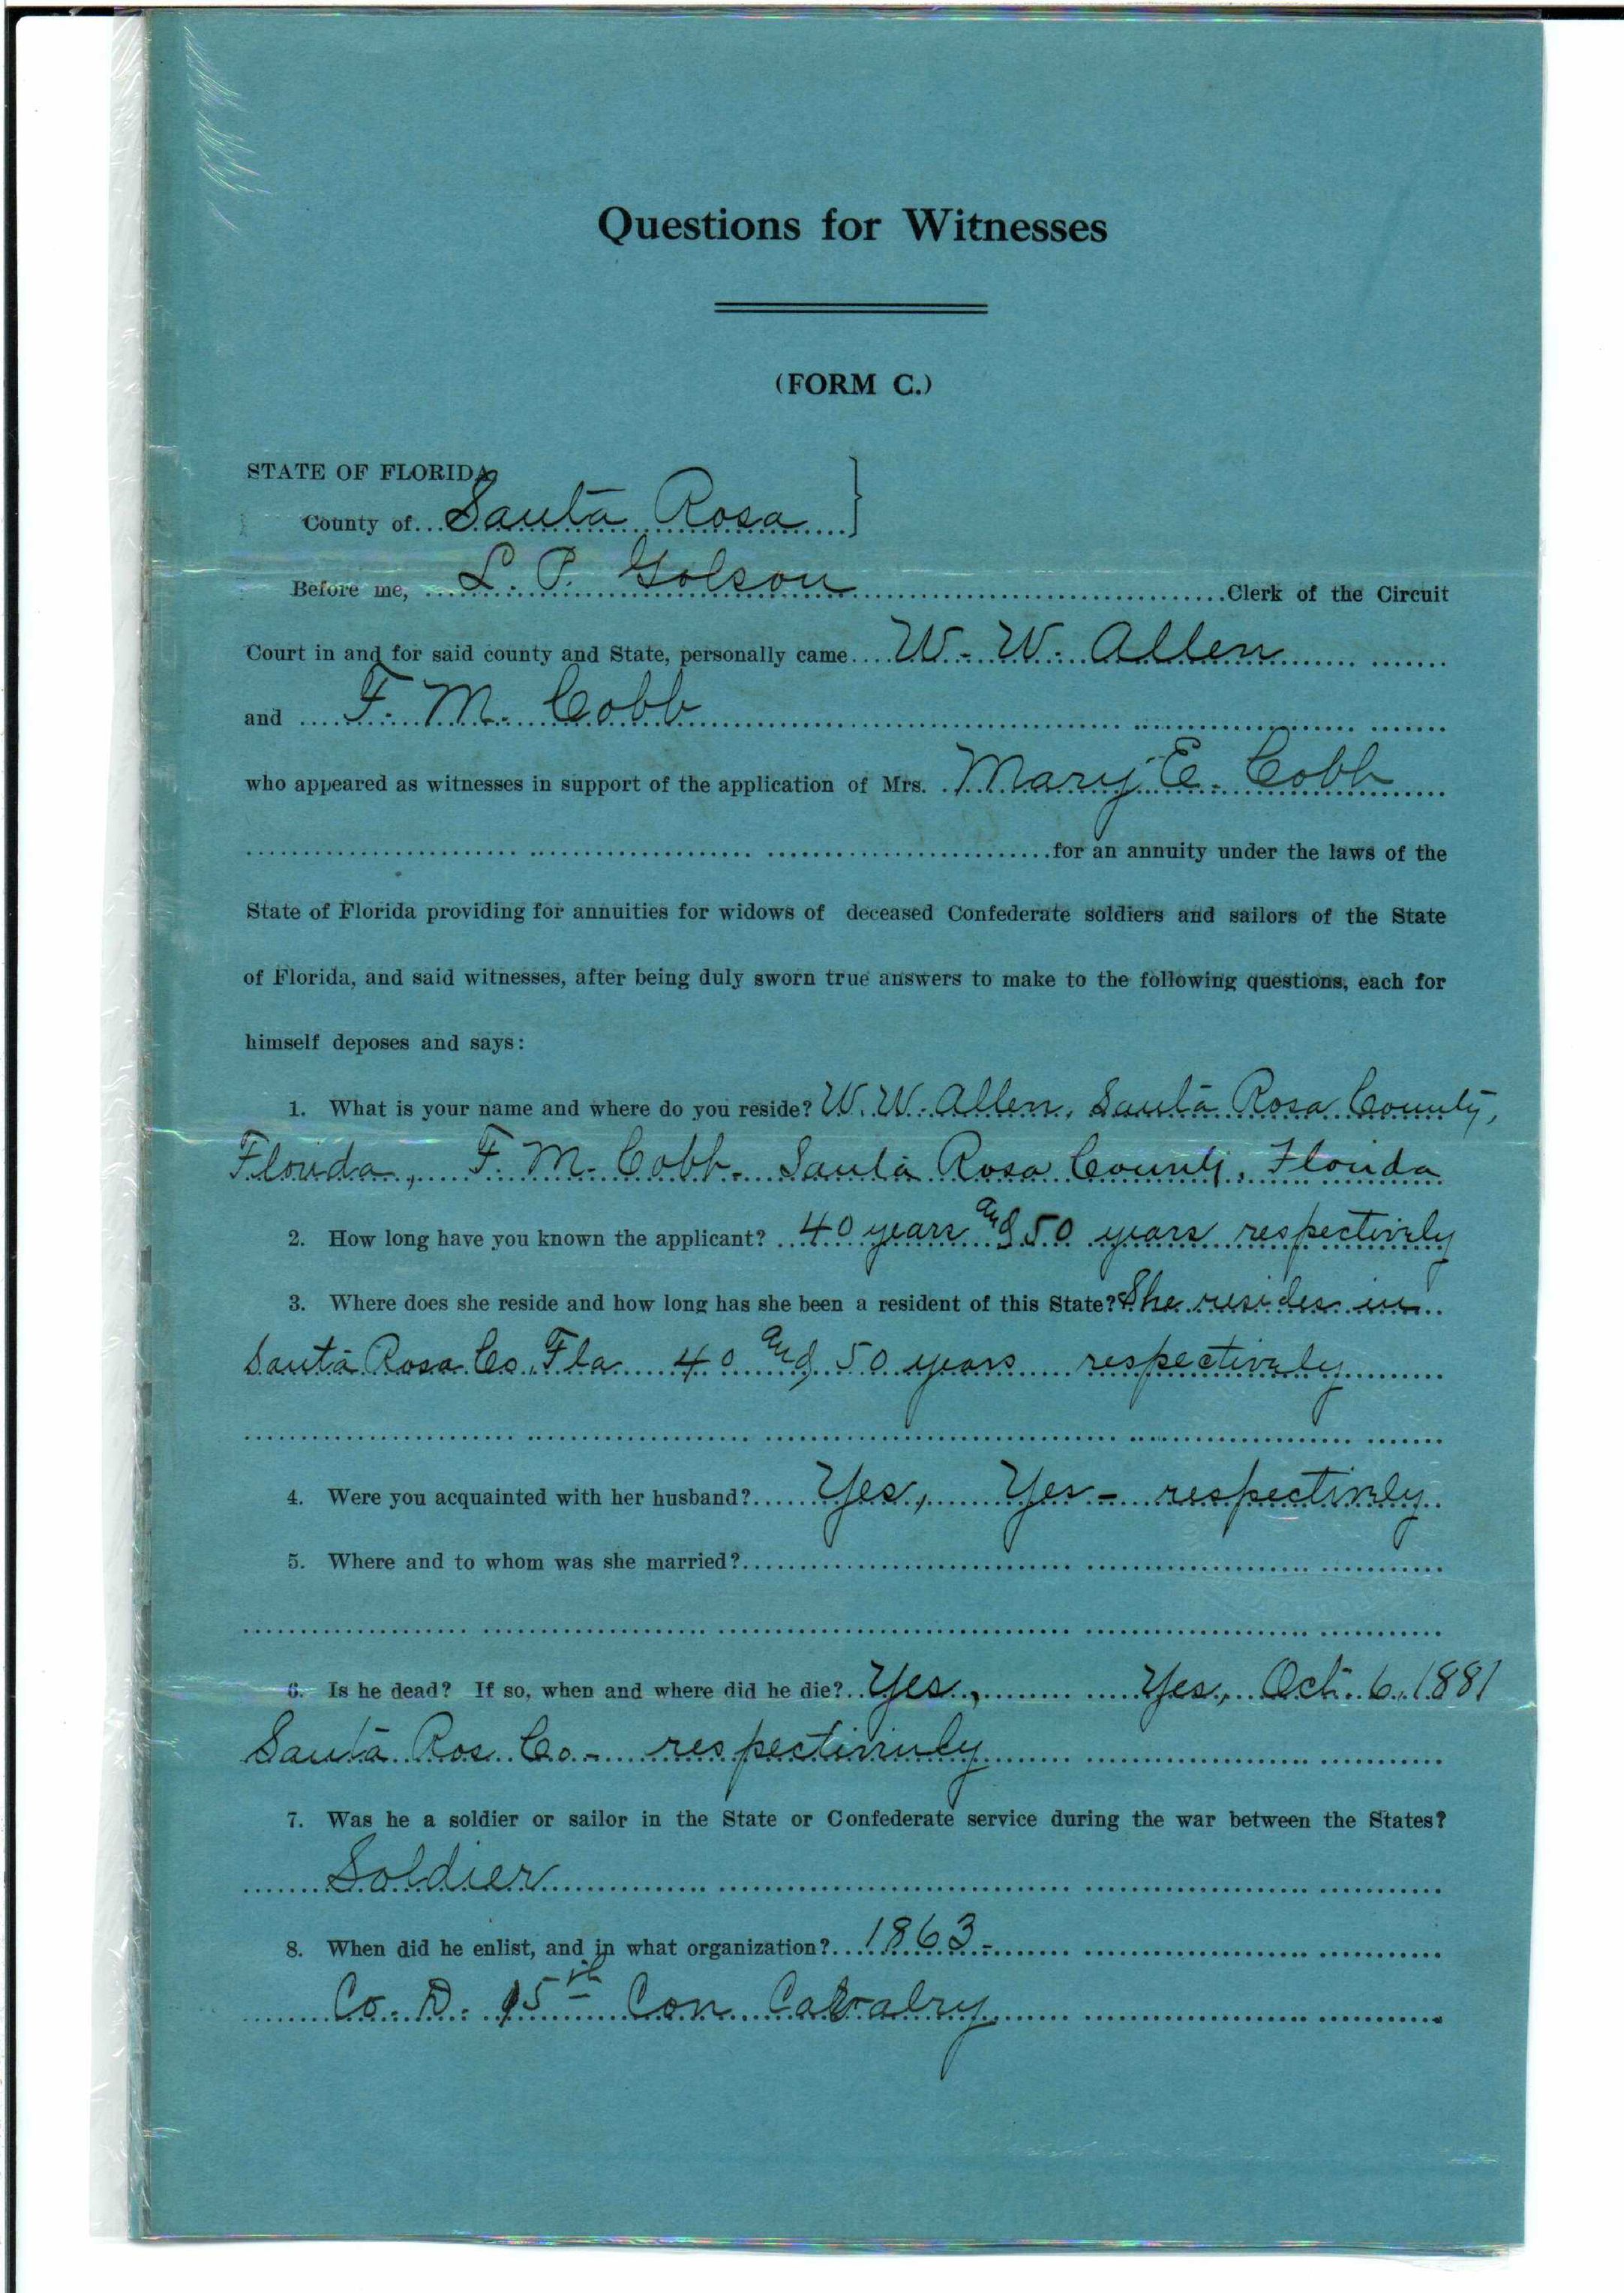 Questions for Witnesses
(FORM C.)
STATE OF FLORIDA
County of Santa Rosa }
Before me, L. P. Golson Clerk of the Circuit
Court in and for said county and State, personally came W. W. Allen
and F. M. Cobb
who appeared as witnesses in support of the application of Mrs. Mary E. Cobb
for an annuity under the laws of the
State of Florida providing for annuities for widows of deceased Confederate soldiers and sailors of the State
of Florida, and said witnesses, after being duly sworn true answers to make to the following questions, each for
himself deposes and says:
1. What is your name and where do you reside? W. W. Allen, Santa Rosa County,
Florida, F. M. Cobb- Santa Rosa County, Florida
2. How long have you known the applicant? 40 years and 50 years respectively
3. Where does she reside and how long has she been a resident of this State? She resides in
Santa Rosa Co. Fla 40 and 50 years respectively
4. Were you acquainted with her husband? Yes, Yes- respectively
5. Where and to whom was she married?
6. Is he dead? If so, when and where did he die? Yes, Yes, Oct. 6, 1881
Santa Ros Co- respectively
7. Was he a soldier or sailor in the State or Confederate service during the war between the States?
Soldier
8. When did he enlist, and in what organization? 1863-
Co. D. 15th Con Calvalry